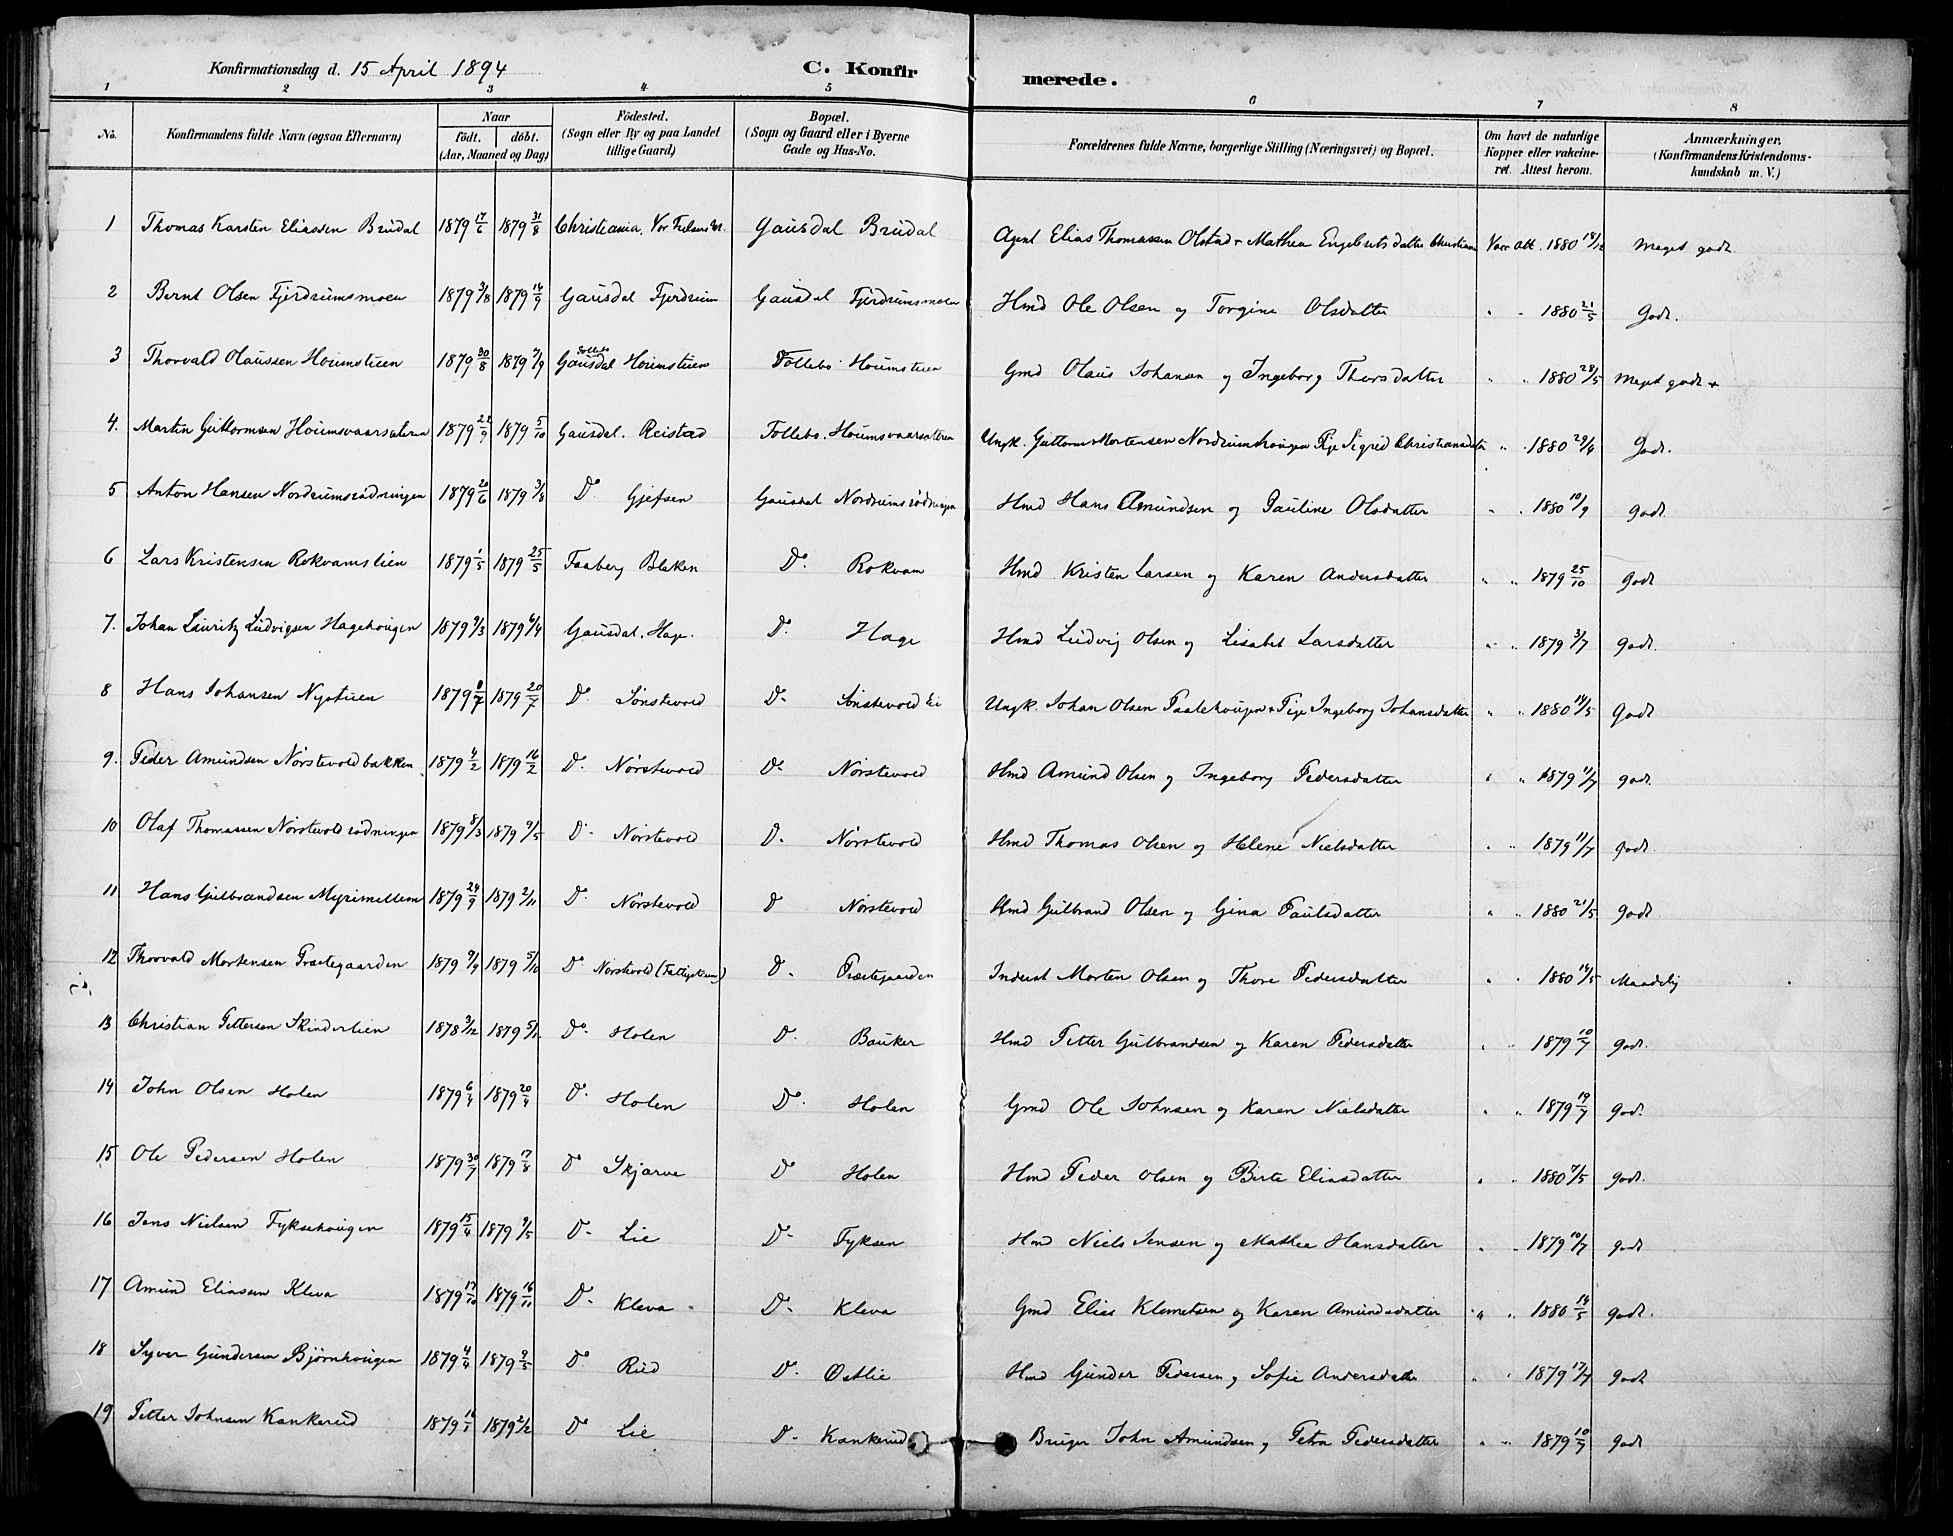 Konfirmationsdag d. 15 April 1894 C. Konfirmerede.
1 2 3 4 5 6 7 8
No. Konfirmandens fulde Navn (ogsaa Efternavn) Naar födt. döbt. (Aar, Maaned og Dag) Födested. (Sogn eller By og paa Landet tillige Gaard) Bopæl. (Sogn og Gaard eller i Byerne Gade og Hus-No. Forældrenes fulde Navne, borgerlige Stilling (Næringsvei) og Bopæl. Om havt de naturlige Kopper eller vakcineret. Attest herom. Anmærkninger. (Konfirmandens Kristendomskundskab m. V.)
1 Thomas Karsten Eliassen Brudal 1879 17/6 1879 31/8 Christiania, Vor Frelsers Gausdal Brudal Agent Elias Thomassen Olstad + Mathea Engebretsdatter Christiania Vacc att. 1880 18/12 Meget godt.
2 Bernt Olsen Fjerdrumsmoen 1879 3/8 1879 14/9 Gausdal Fjerdrum Gausdal Fjerdrumsmoen Hmd Ole Olsen og Torgine Olsdatter " " 1880 21/5 Godt.
3 Thorvald Olaussen Houmstuen 1879 30/8 1879 /9 Follebo Gausdal Houmstuen Follebo Houmstuen Gmd Olaus Johansen og Ingeborg Thorsdatter " " 1880 28/5 Meget godt +
4. Martin Guttormsen Houmsvaarsæteren 1879 22/9 1879 5/10 Gausdal. Reistad Follebo. Houmsvaarsætren Ungk. Guttorm Mortensen Nordrumshougen Pige Sigrid Christiansdatter " " 1880 29/4 Godt.
5 Anton Hansen Nordrumsrödningen 1879 20/6 1879 3/8 Do Gjefsen Gausdal Nordrumsrödningen Hmd Hans Amundsen og Pauline Olsdatter " " 1880 10/9 godt
6 Lars Kristensen Rokvamslien 1879 1/5 1879 25/5 Faaberg Blaken Do. Rokvam Hmd Kristen Larsen og Karen Andersdatter " " 1879 25/10 godt
7. Johan Lauritz Ludvigsen Hagehougen 1879 9/3 1879 6/4 Gausdal, Hage. Do. Hage Hmd Ludvig Olsen og Lisabet Larsdatter " " 1879 3/7 godt.
8 Hans Johansen Nystuen 1879 /7 1879 20/7 Do Sönstevold Do Sönstevold Ei Ungk. Johan Olsen Paalehougen + Pige Ingeborg Johansdatter " " 1880 14/5 Godt
9. Peder Amundsen Nörstevoldbakken 1879 4/2 1879 16/2 Do. Nörstevold Do Nörstevold Hmd Amund Olsen og Ingeborg Pedersdatter " " 1879 11/7 godt.
10 Olaf Thomassen Nörstevoldrödningen 1879 8/3 1879 9/5 Do Nörstevold Do. Nörstevold Hmd Thomas Olsen og Helene Nielsdatter " " 1879 11/7 godt.
11 Hans Gulbrandsen Myrimellem 1879 24/9 1879 2/11 Do Nörstevold Do Nörstevold Hmd Gulbrand Olsen og Gina Paulsdatter " " 1880 21/5 godt
12 Thorvald Mortensen Præstegaarden 1879 9/9 1879 5/10 Do Nörstevold (Fattigstuen) Do. Præstegaarden Inderst Morten Olsen og Thore Pedersdatter " " 1880 14/5 Maadelig
13 Christian Pettersen Skinderlien 1878 3/12 1879 5/1 Do Holen Do. Bauker Hmd Petter Gulbrandsen og Karen Pedersdatter " " 1879 10/7 godt.
14 John Olsen Holen 1879 6/4 1879 20/4 Do. Holen Do. Holen Gmd Ole Johnsen og Karen Nielsdatter " " 1879 19/7 godt.
15 Ole Pedersen Holen 1879 30/7 1879 17/8 Do Skjarve Do Holen Hmd Peder Olsen og Berte Eliasdatter " " 1880 7/5 godt.
16 Jens Nielsen Fyksehougen 1879 15/4 1879 9/5 Do Lie Do Fyksen Hmd Niels Jensen og Mathea Hansdatter " " 1879 10/7 godt
17 Amund Eliasen Kleva 1879 17/10 1879 16/11 Do Kleva Do Kleva Gmd Elias Klemetsen og Karen Amundsdatter " " 1880 14/5 godt.
18 Syver Gundersen Bjørnhougen 1879 4/4 1879 9/5 Do Rud Do. Østlie Hmd Gunder Pedersen og Sofie Andersdatter " " 1879 17/7 godt
19 Petter Johnsen Kankerud 1879 1879 2/2 Do Lie Do Kankerud Bruger John Amundsen og Petra Pedersdatter " " 1879 10/7 godt